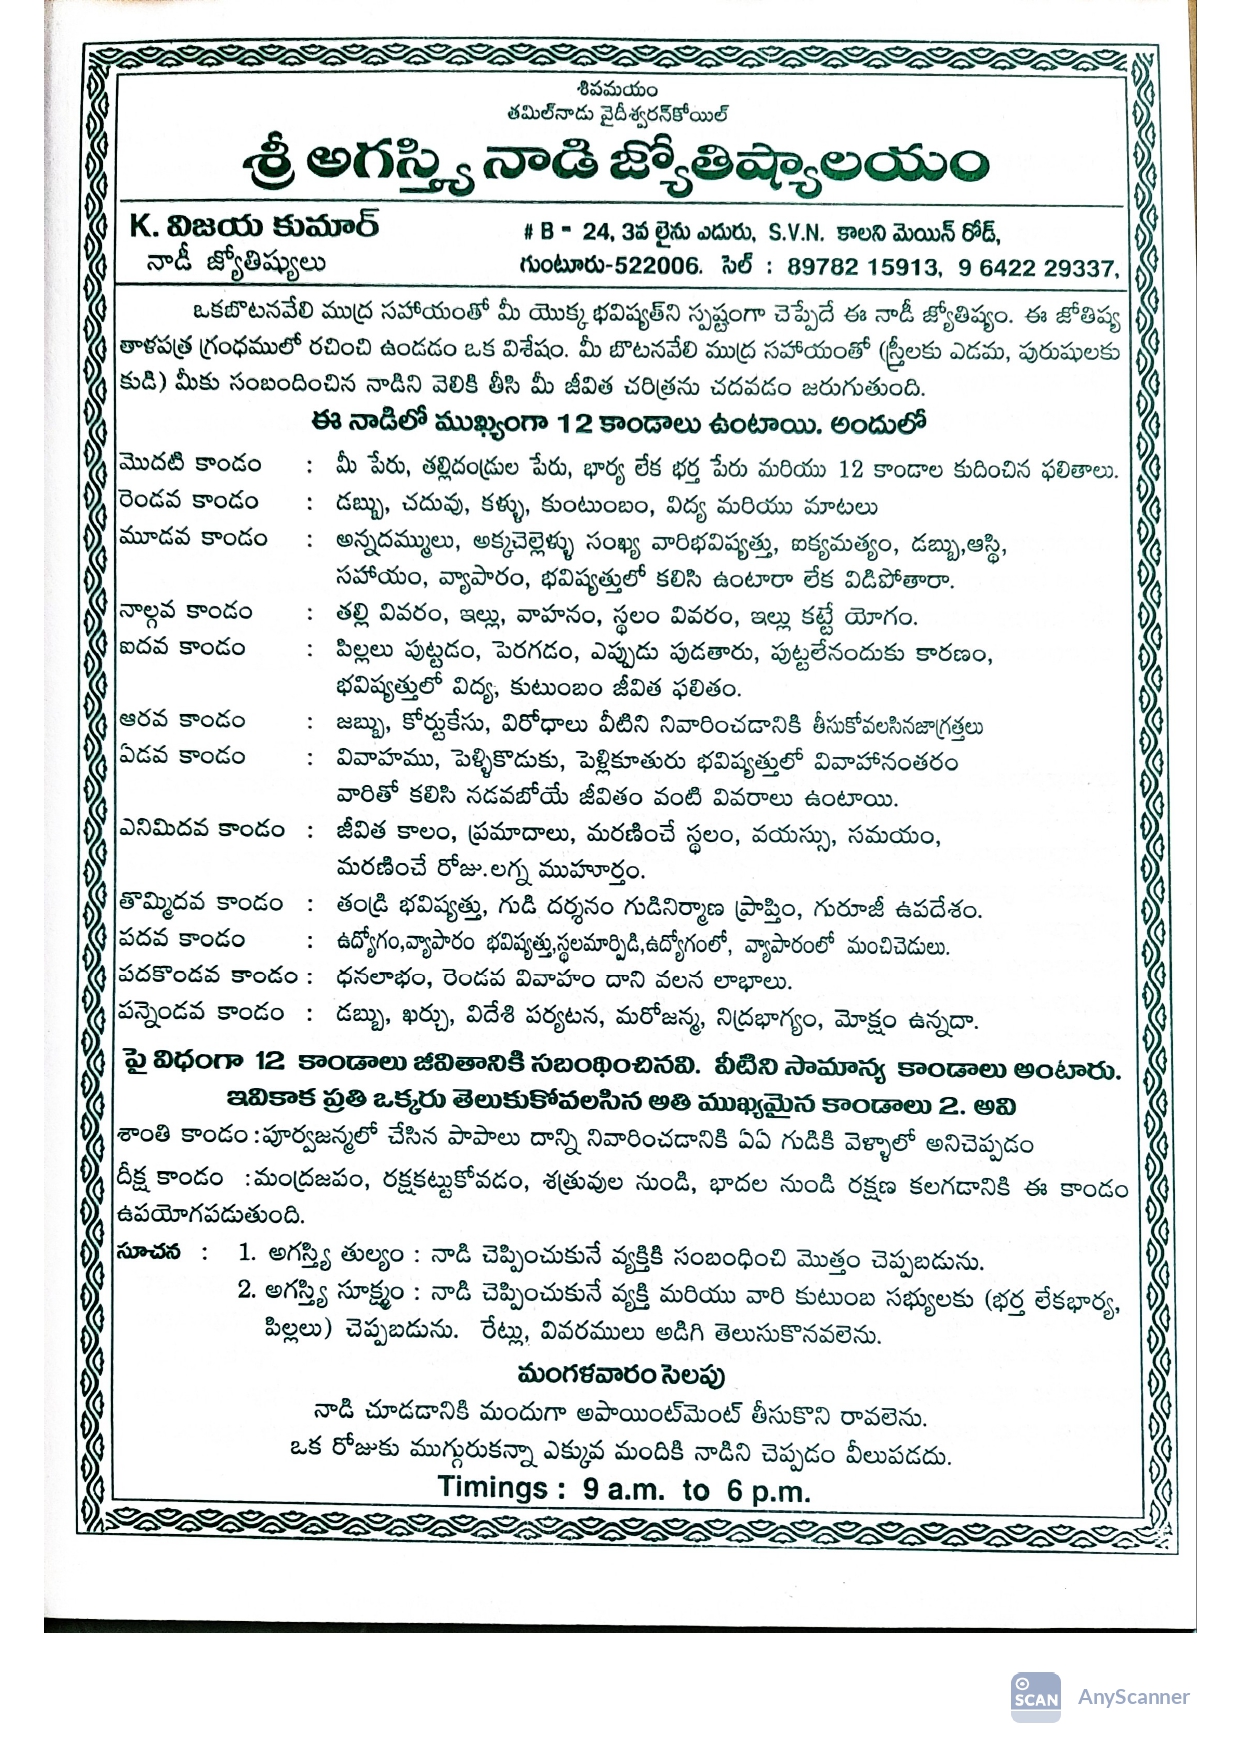 శివమయం
తమిల్‌నాడు వైదీశ్వరన్‌కోయిల్
శ్రీ అగస్త్యి నాడి జ్యోతిష్యాలయం
K. విజయ కుమార్
# B - 24, 3వ లైను ఎదురు, S.V.N. కాలని మెయిన్ రోడ్,
నాడీ జ్యోతిష్యులు
గుంటూరు-522006. సెల్ : 89782 15913, 9 6422 29337,
ఒకబొటనవేలి ముద్ర సహాయంతో మీ యొక్క భవిష్యత్‌ని స్పష్టంగా చెప్పేదే ఈ నాడీ జ్యోతిష్యం. ఈ జోతిష్య
తాళపత్ర గ్రంధములో రచించి ఉండడం ఒక విశేషం. మీ బొటనవేలి ముద్ర సహాయంతో (స్త్రీలకు ఎడమ, పురుషులకు
కుడి) మీకు సంబందించిన నాడిని వెలికి తీసి మీ జీవిత చరిత్రను చదవడం జరుగుతుంది.
ఈ నాడిలో ముఖ్యంగా 12 కాండాలు ఉంటాయి. అందులో
మొదటి కాండం : మీ పేరు, తల్లిదండ్రుల పేరు, భార్య లేక భర్త పేరు మరియు 12 కాండాల కుదించిన ఫలితాలు.
రెండవ కాండం : డబ్బు, చదువు, కళ్ళు, కుంటుంబం, విద్య మరియు మాటలు
మూడవ కాండం : అన్నదమ్ములు, అక్కచెల్లెళ్ళు సంఖ్య వారిభవిష్యత్తు, ఐక్యమత్యం, డబ్బు,ఆస్థి,
సహాయం, వ్యాపారం, భవిష్యత్తులో కలిసి ఉంటారా లేక విడిపోతారా.
నాల్గవ కాండం : తల్లి వివరం, ఇల్లు, వాహనం, స్థలం వివరం, ఇల్లు కట్టే యోగం.
ఐదవ కాండం : పిల్లలు పుట్టడం, పెరగడం, ఎప్పుడు పుడతారు, పుట్టలేనందుకు కారణం,
భవిష్యత్తులో విద్య, కుటుంబం జీవిత ఫలితం.
ఆరవ కాండం : జబ్బు, కోర్టుకేసు, విరోధాలు వీటిని నివారించడానికి తీసుకోవలసినజాగ్రత్తలు
ఏడవ కాండం : వివాహము, పెళ్ళికొడుకు, పెళ్లికూతురు భవిష్యత్తులో వివాహానంతరం
వారితో కలిసి నడవబోయే జీవితం వంటి వివరాలు ఉంటాయి.
ఎనిమిదవ కాండం : జీవిత కాలం, ప్రమాదాలు, మరణించే స్థలం, వయస్సు, సమయం,
మరణించే రోజు.లగ్న ముహూర్తం.
తొమ్మిదవ కాండం : తండ్రి భవిష్యత్తు, గుడి దర్శనం గుడినిర్మాణ ప్రాప్తిం, గురూజీ ఉపదేశం.
పదవ కాండం : ఉద్యోగం,వ్యాపారం భవిష్యత్తు,స్థలమార్పిడి,ఉద్యోగంలో, వ్యాపారంలో మంచిచెడులు.
పదకొండవ కాండం : ధనలాభం, రెండవ వివాహం దాని వలన లాభాలు.
పన్నెండవ కాండం : డబ్బు, ఖర్చు, విదేశి పర్యటన, మరోజన్మ, నిద్రభాగ్యం, మోక్షం ఉన్నదా.
పై విధంగా 12 కాండాలు జీవితానికి సబంథించినవి. వీటిని సామాన్య కాండాలు అంటారు.
ఇవికాక ప్రతి ఒక్కరు తెలుకుకోవలసిన అతి ముఖ్యమైన కాండాలు 2. అవి
శాంతి కాండం :పూర్వజన్మలో చేసిన పాపాలు దాన్ని నివారించడానికి ఏఏ గుడికి వెళ్ళాలో అనిచెప్పడం
దీక్ష కాండం :మంద్రజపం, రక్షకట్టుకోవడం, శత్రువుల నుండి, భాదల నుండి రక్షణ కలగడానికి ఈ కాండం
ఉపయోగపడుతుంది.
సూచన : 1. అగస్త్యి తుల్యం : నాడి చెప్పించుకునే వ్యక్తికి సంబంధించి మొత్తం చెప్పబడును.
2. అగస్త్యి సూక్ష్మం : నాడి చెప్పించుకునే వ్యక్తి మరియు వారి కుటుంబ సభ్యులకు (భర్త లేకభార్య,
పిల్లలు) చెప్పబడును. రేట్లు, వివరములు అడిగి తెలుసుకొనవలెను.
మంగళవారం సెలపు
నాడి చూడడానికి మందుగా అపాయింట్‌మెంట్ తీసుకొని రావలెను.
ఒక రోజుకు ముగ్గురుకన్నా ఎక్కువ మందికి నాడిని చెప్పడం వీలుపడదు.
Timings : 9 a.m. to 6 p.m.
SCAN AnyScanner